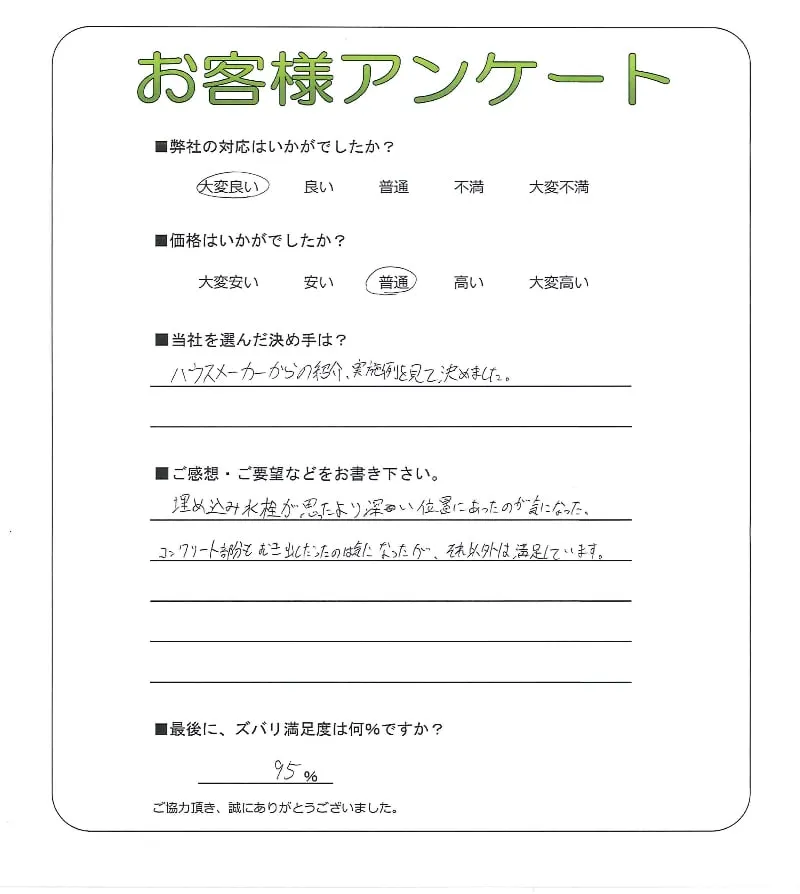 お客様アンケート
■弊社の対応はいかがでしたか？
大変良い 良い 普通 不満 大変不満
■価格はいかがでしたか？
大変安い 安い 普通 高い 大変高い
■当社を選んだ決め手は？
ハウスメーカーからの紹介、実施例を見て決めました。
■ご感想・ご要望などをお書き下さい。
埋め込み水栓が思ったより深い位置にあったのが気になった、
コンクリート部分もむき出しだったのは気になったが、それ以外は満足しています。
■最後に、ズバリ満足度は何%ですか？
95%
ご協力頂き、誠にありがとうございました。